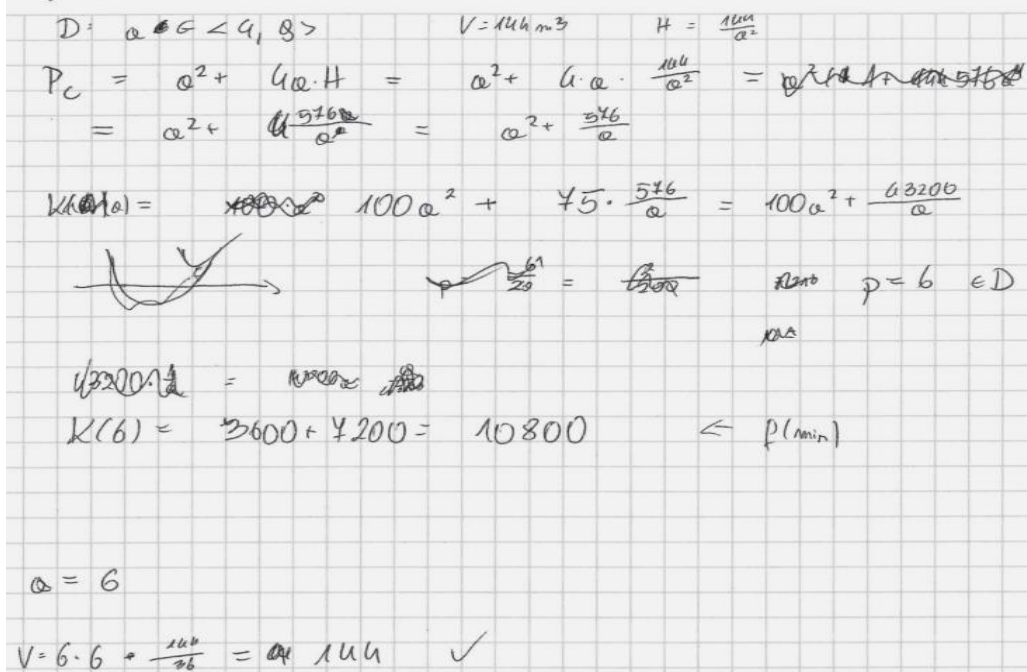 D: a ∈ <4, 8> V = 144 m3 H = 144/a²
Pc = a² + 4a·H = a² + 4·a· 144/a² =
= a² + 576/a = a² + 576/a
K(a) = 100a² + 75· 576/a = 100a² + 43200/a
= p = 6 ∈ D
=
K(6) = 3600 + 7200 = 10800 ← f(min)
a = 6
V = 6·6 · 144/36 = 144 ✓